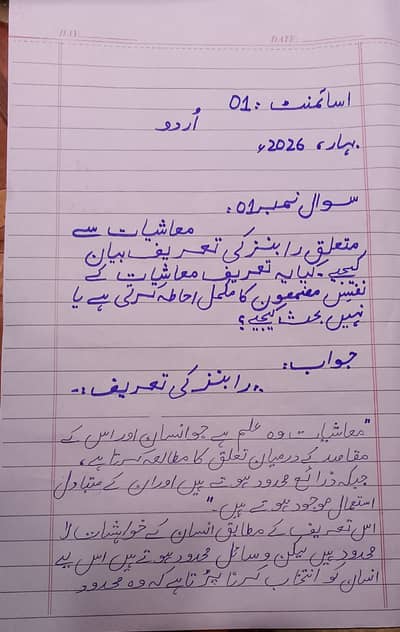 DAY:
DATE:
اسائمنٹ : 01
اُردو
بہار، 2026ء
سوال نمبر 01:
معاشیات سے
متعلق رابنز کی تعریف بیان
کیجیے۔ کیا یہ تعریف معاشیات کے
نفیس مضمون کا مکمل احاطہ کرتی ہے یا
نہیں بحث کیجیے؟
جواب:
رابنز کی تعریف:۔
"معاشیات وہ علم ہے جو انسان اور اس کے
مقاصد کے درمیان تعلق کا مطالعہ کرتا ہے،
جبکہ ذرائع محدود ہوتے ہیں اور ان کے متبادل
استعمال موجود ہوتے ہیں۔"
اس تعریف کے مطابق انسان کے خواہشات لا
محدود ہیں لیکن وسائل محدود ہوتے ہیں اس لیے
انسان کو انتخاب کرنا پڑتا ہے کہ وہ محدود